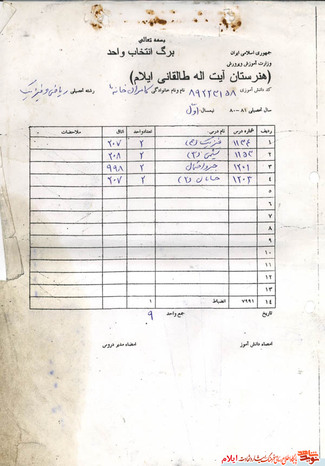 بسمه تعالی
جمهوری اسلامی ایران
وزارت آموزش وپرورش
برگ انتخاب واحد
(هنرستان آیت اله طالقانی ایلام)
کد دانش آموزی ۸۹۲۲۳۱۵۸ نام و نام خانوادگی کامران رشته تحصیلی ریاضی و فیزیک
سال تحصیلی ۸۱-۸۰ نیمسال اول
ردیف شماره درس نام درس تعدادواحد اتاق ملاحضات
۱ ۱۱۳۶ فیزیک ۲ ۲۰۷
۲ ۱۱۵۲ شیمی (۲) ۲ ۲۰۸
۳ ۱۲۰۱ جبر و احتمال ۲ ۹۹۸
۴ ۱۲۰۳ حسابان (۲) ۲ ۲۰۷
۵
۶
۷
۸
۹
۱۰
۱۱
۱۲
۱۳
۱۴ ۷۹۹۱ انضباط ۱
تاریخ جمع واحد ۹
امضاء دانش آموز امضاء مدیر دروس
ایلام